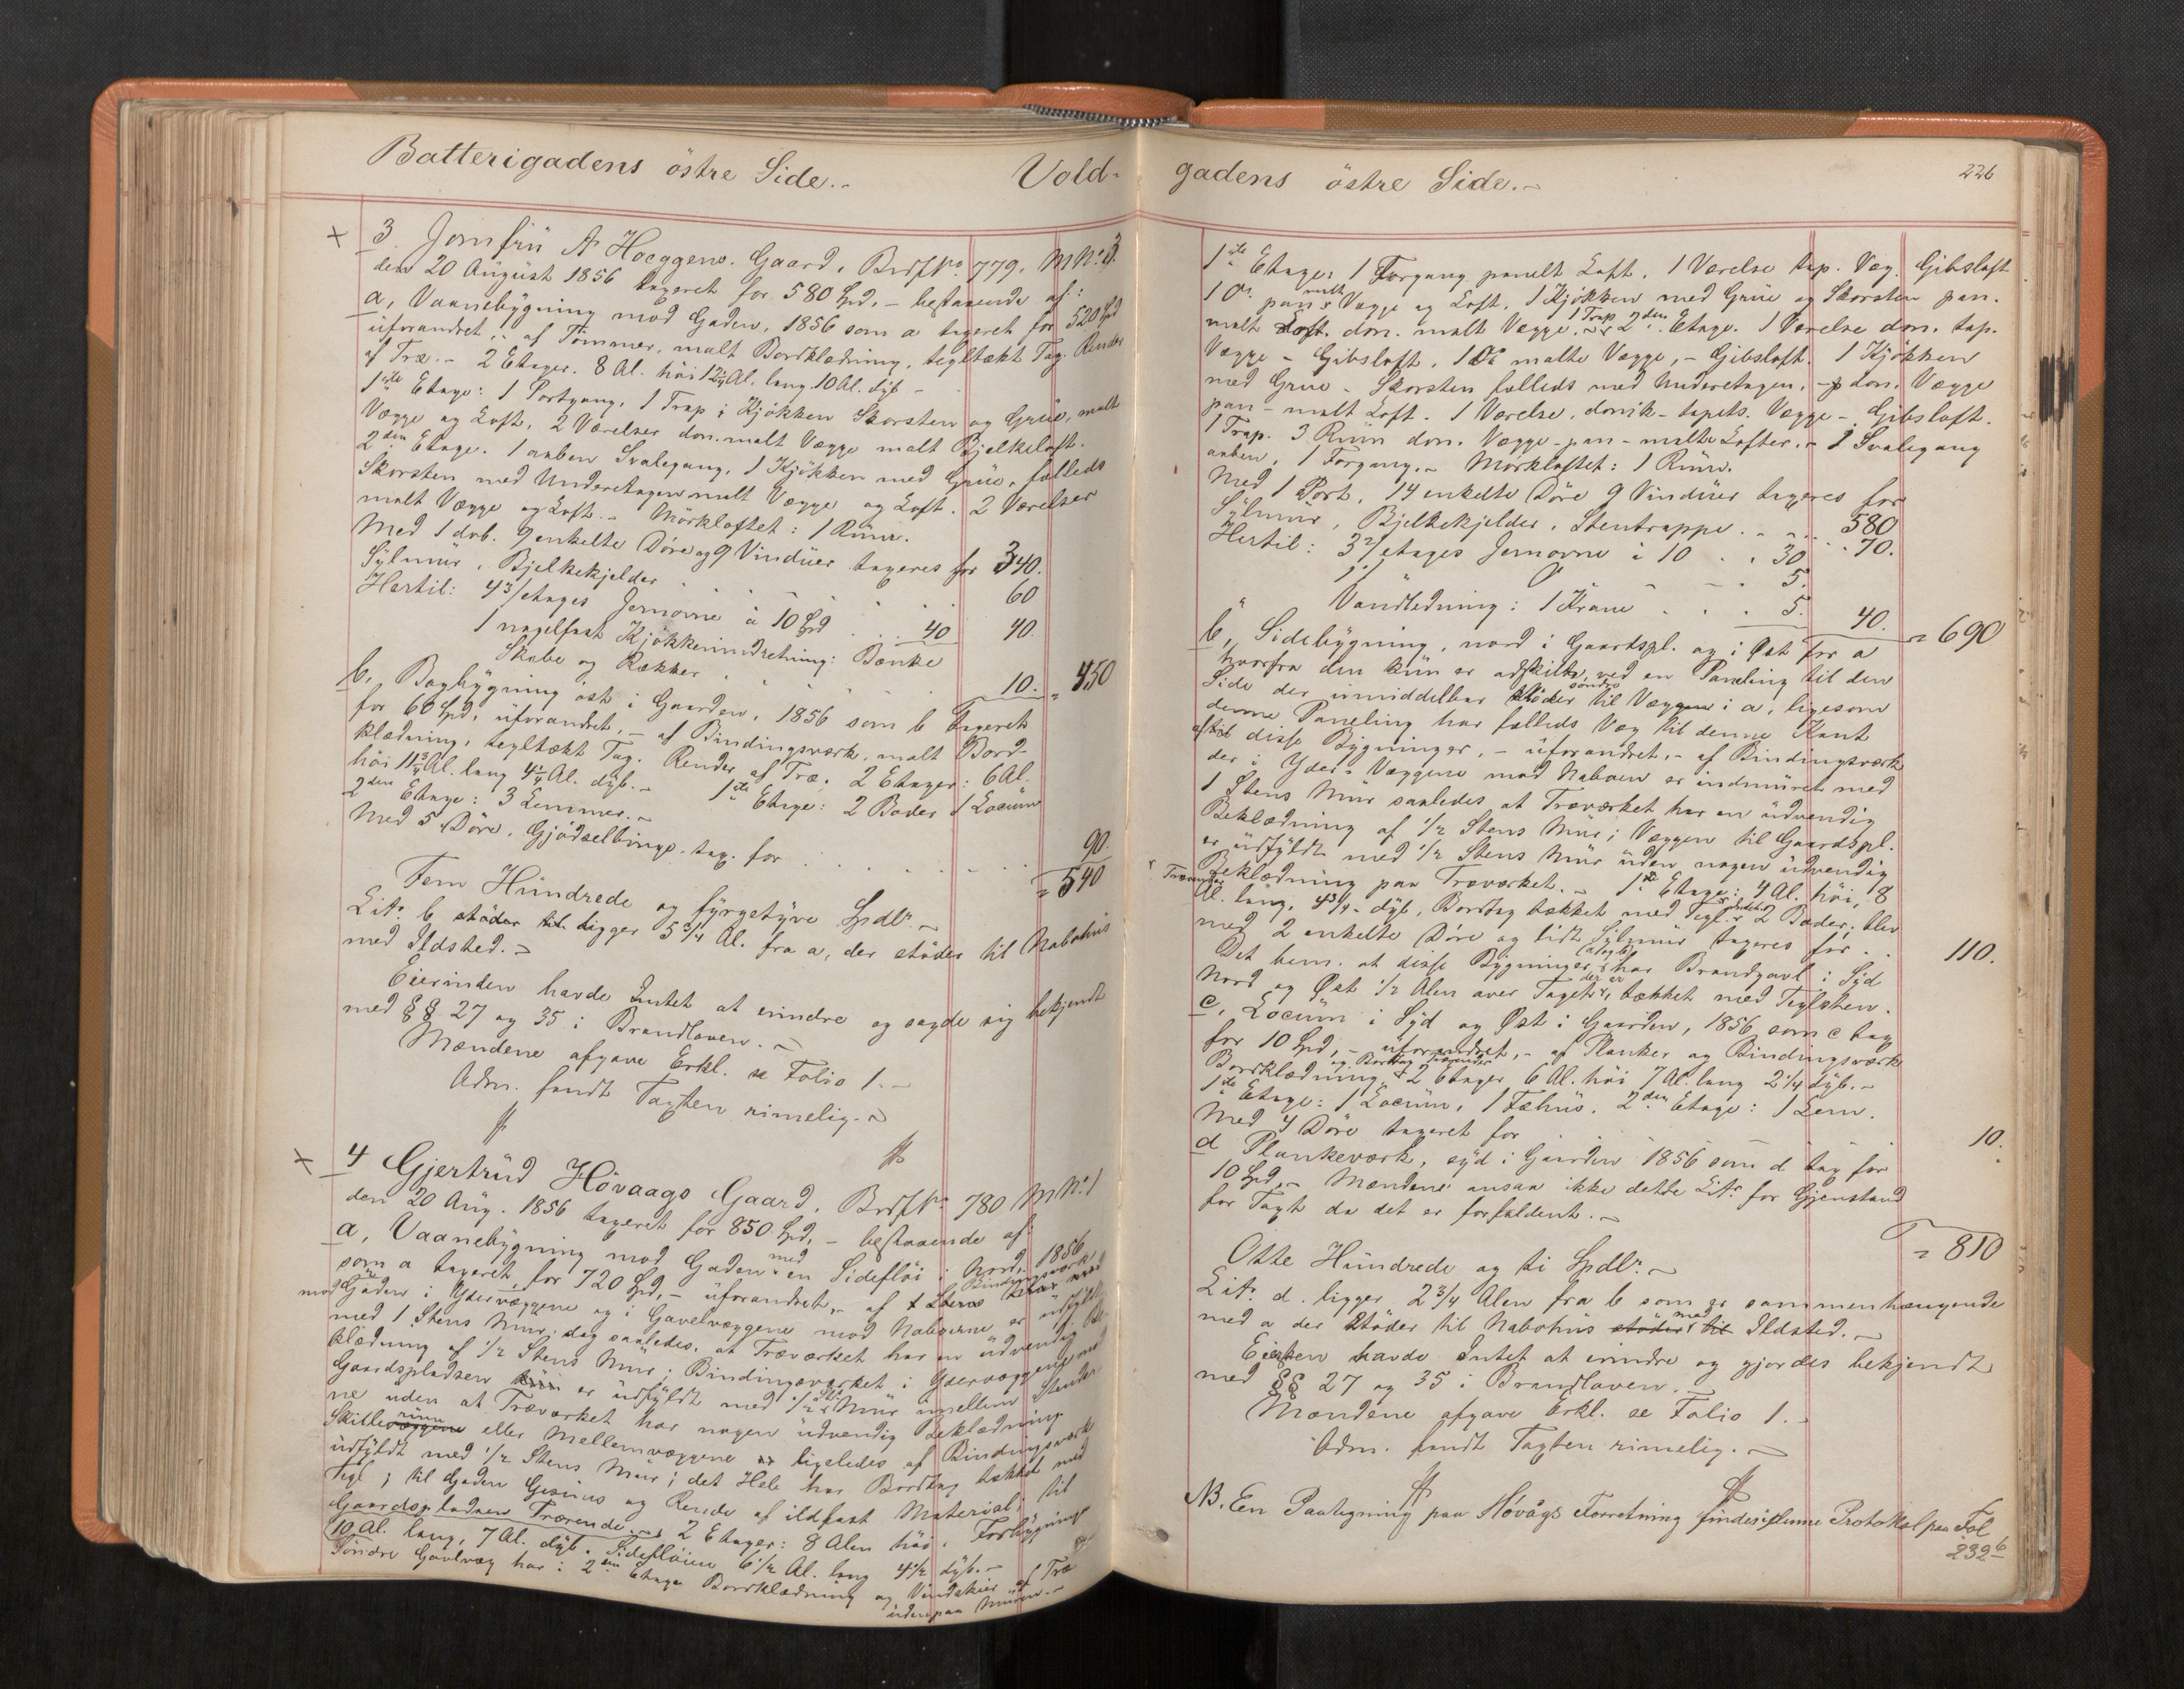 Batterigadens östre Side.-
Vold-
3. Jomfrü A. Hoeggens. Gaard, Brdf No 779. M No 3.
den 20 Aügüst 1856 taxeret for 580 Spd. - bestaaende af:
a, Vaanebygning mod Gaden, 1856 som a taxeret for 520 Spd
üforandret, - af Tömmer, malt Bordklædning, tegltækt Tag. Render
af Træ. - 2 Etager. 8 Al. höi 12 3/4 Al. lang 10 Al. dyb -
1ste Etage: 1 Portgang, 1 Trap i Kjökken Skorsten og Grüe, malt
Vægge og Loft, 2 Værelser don. malt Vægge malt Bjelkeloft.
2den Etage. 1 aaben Svalegang, 1 Kjökken med Grüe, fælleds
Skorsten med Underetagen malt Vægge og Loft. 2 Værelser
malt Vægge og Loft. - Mörkloftet: 1 Rüm.
Med 1 dob. 9 enkelte Döre og 9 Vindüer taxeres for 340.
Sylmür, Bjelkekjelder 60
Hertil: 4 3/etages Jernovne à 10 Spd 40 40.
1 nagelfast Kjökkenindretning: Bænke
Skabe og Rækker 10. = 450
b, Bagbygning öst i Gaarden, 1856 som b taxeret
for 60 Spd, üforandret, - af Bindingsværk, malt Bord-
klædning, tegltækt Tag. Render af Træ. 2 Etager: 6 Al.
höi 11 3/4 Al. lang 4 1/4 Al. dyb. - 1ste Etage: 2 Boder 1 Locüm
2den Etage: 3 Lemmer. -
Med 5 Döre, Gjödselbinge, tax. for 90.
= 540
Fem Hündrede og fyrgetyve Spdlr. -
Litr. b stöder til ligger 5 3/4 Al. fra a, der stöder til Nabohüs
med Ildsted. -
Eierinden havde Intet at erindre og sagde sig bekjendt
med §§ 27 og 35 i Brandloven. -
Mændene afgave Erkl. se Folio 1. -
Adm. fandt Taxten rimelig. -
4 Gjertrüd Hövaags Gaard, Brdf No 780 M No 1
den 20 Aüg. 1856 taxeret for 850 Spd, - bestaaende af:
a, Vaanebygning mod Gaden med en Sideflöi i Nord, 1856
som a taxeret for 720 Spd, - üforandret, - af Bindingsværk
mod Gaden i Ydervæggene og i Gavelvæggene mod Naboerne er üdfyldt
med 1 Stens Mür, dog saaledes, at Træværket har en üdvendig Be-
klædning af 1/2 Stens Mür; Bindingsværket i Ydervæggene mod
Gaardspladsen er üdfyldt med 1/2 St. Mür imellem Stender-
ne uden at Træværket har nogen üdvendig Beklædning.
Skillerüms eller Mellemvæggene ligeledes af Bindingsværk
üdfyldt med 1/2 Stens Mür; det Hele har Bordtag tækket med
Tegl; til Gaden Gesims og Rende af ildfast Material, til
Gaardspladsen Trærende. - 2 Etager: 8 Alen höi. Forbygningen
10 Al. lang, 7 Al. dyb. Sideflöien 6 1/2 Al. lang 4 1/2 dyb. -
Söndre Gavlvæg har i 2den Etage Bordklædning og Vindskier af Træ
üdenpaa Müren. -
gadens östre Side. -
226
1ste Etage: 1 Forgang panelt Loft. 1 Værelse tap. Væg. Gibsloft
1 Do. pan. malt Vægge og Loft. 1 Kjökken med Grüe og Skorsten pan.
malt Loft. don. malt Vægge. 1 Trap 2den Etage. 1 Værelse don. tap.
Vægge - Gibsloft. 1 Do malte Vægge, - Gibsloft. 1 Kjökken
med Grüe - Skorsten fælleds med Underetagen, - don. Vægge
pan - malt Loft. 1 Værelse, donik - tapets. Vægge - Gibsloft.
1 Trap. 3 Rüm don. Vægge - pan - malte Lofter. - 1 Svalegang
aaben, 1 Forgang. - Mörkloftet: 1 Rüm.
Med 1 Port, 14 enkelte Döre 9 Vindüer taxeres for 580
Sylmür, Bjelkekjelder, Stentrappe 70.
Hertil: 3 2/etages Jernovne à 10 30
1 1/ " 5.
" Vandledning: 1 Krane 5. 40. = 690
b, Sidebygning, nord i Gaardspl. og i Öst for a
hvorfra den kün er adskilt ved en Paneling til den söndre
Side der ümiddelbar stöder til Væggen i a, ligesom
denne Paneling har fælleds Væg til denne Kant
af disse Bygninger, - üforandret, - af Bindingsværk
der i Yder-Væggene mod Naboen er indmüret med
1 Stens Mür saaledes at Træværket har en üdvendig
Beklædning af 1/2 Stens Mür; Væggen til Gaardspl.
er üdfyldt med 1/2 Stens Mür üden nogen üdvendig
Beklædning paa Træværket. - 1ste Etage: 4 Al. höi, 8
Trærender
Al. lang, 4 3/4 - dyb, Bordtag tækket med Tegl. 2 Boder, blev
med 2 enkelte Döre og lidt Sylmür taxeres for 110.
Det bem. at disse Bygninger (a og b) har Brandgavl i Syd
Nord og Öst 1/2 Alen over Taget, der er tækket med Teglsten.
c, Locüm i Syd og Öst i Gaarden, 1856 som c tax
for 10 Spd, - üforandret, - af Planker og Bindingsværk
Bordklædning og Bordtag Trærender 2 Etager 6 Al. höi 7 Al. lang 2 1/4 dyb. -
1ste Etage: 1 Locüm, 1 Fæhüs. 2den Etage: 1 Lem.
Med 4 Döre taxeret for 10.
d Plankeværk, syd i Gaarden 1856 som d tax for
10 Spd. - Mændene ansaa ikke dette Litr. for Gjenstand
for Taxt da det er forfaldent. -
= 810
Otte Hündrede og ti Spdlr. -
Litr. d. ligger 2 3/4 Alen fra b som er sammenhængende
med a der stöder til Nabohüs stöder til med Ildsted. -
Eieren havde Intet at erindre og gjordes bekjendt
med §§ 27 og 35 i Brandloven. -
Mændene afgave Erkl. se Folio 1. -
Adm. fandt Taxten rimelig. -
NB. En Paategning paa Hövågs Forretning findes i denne Protokol paa Fol
232 b